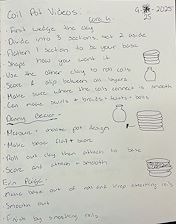 Coil Pot Videos:
- 2025
25
First wedge the clay
Divide into 3 sections, set 2 aside
Flatten 1 section to be your base
Shape how you want it
Use the other clay to roll coils
Score & slip between all layers
Make sure where the coils connect is smooth
Can make swirls +
Measure + pot design
Make base flat + score
Roll out clay then attach to base
Score and attach + smooth
Erin
Make base out of and keep attaching coils
Smooth out
Finish by smoothing coils